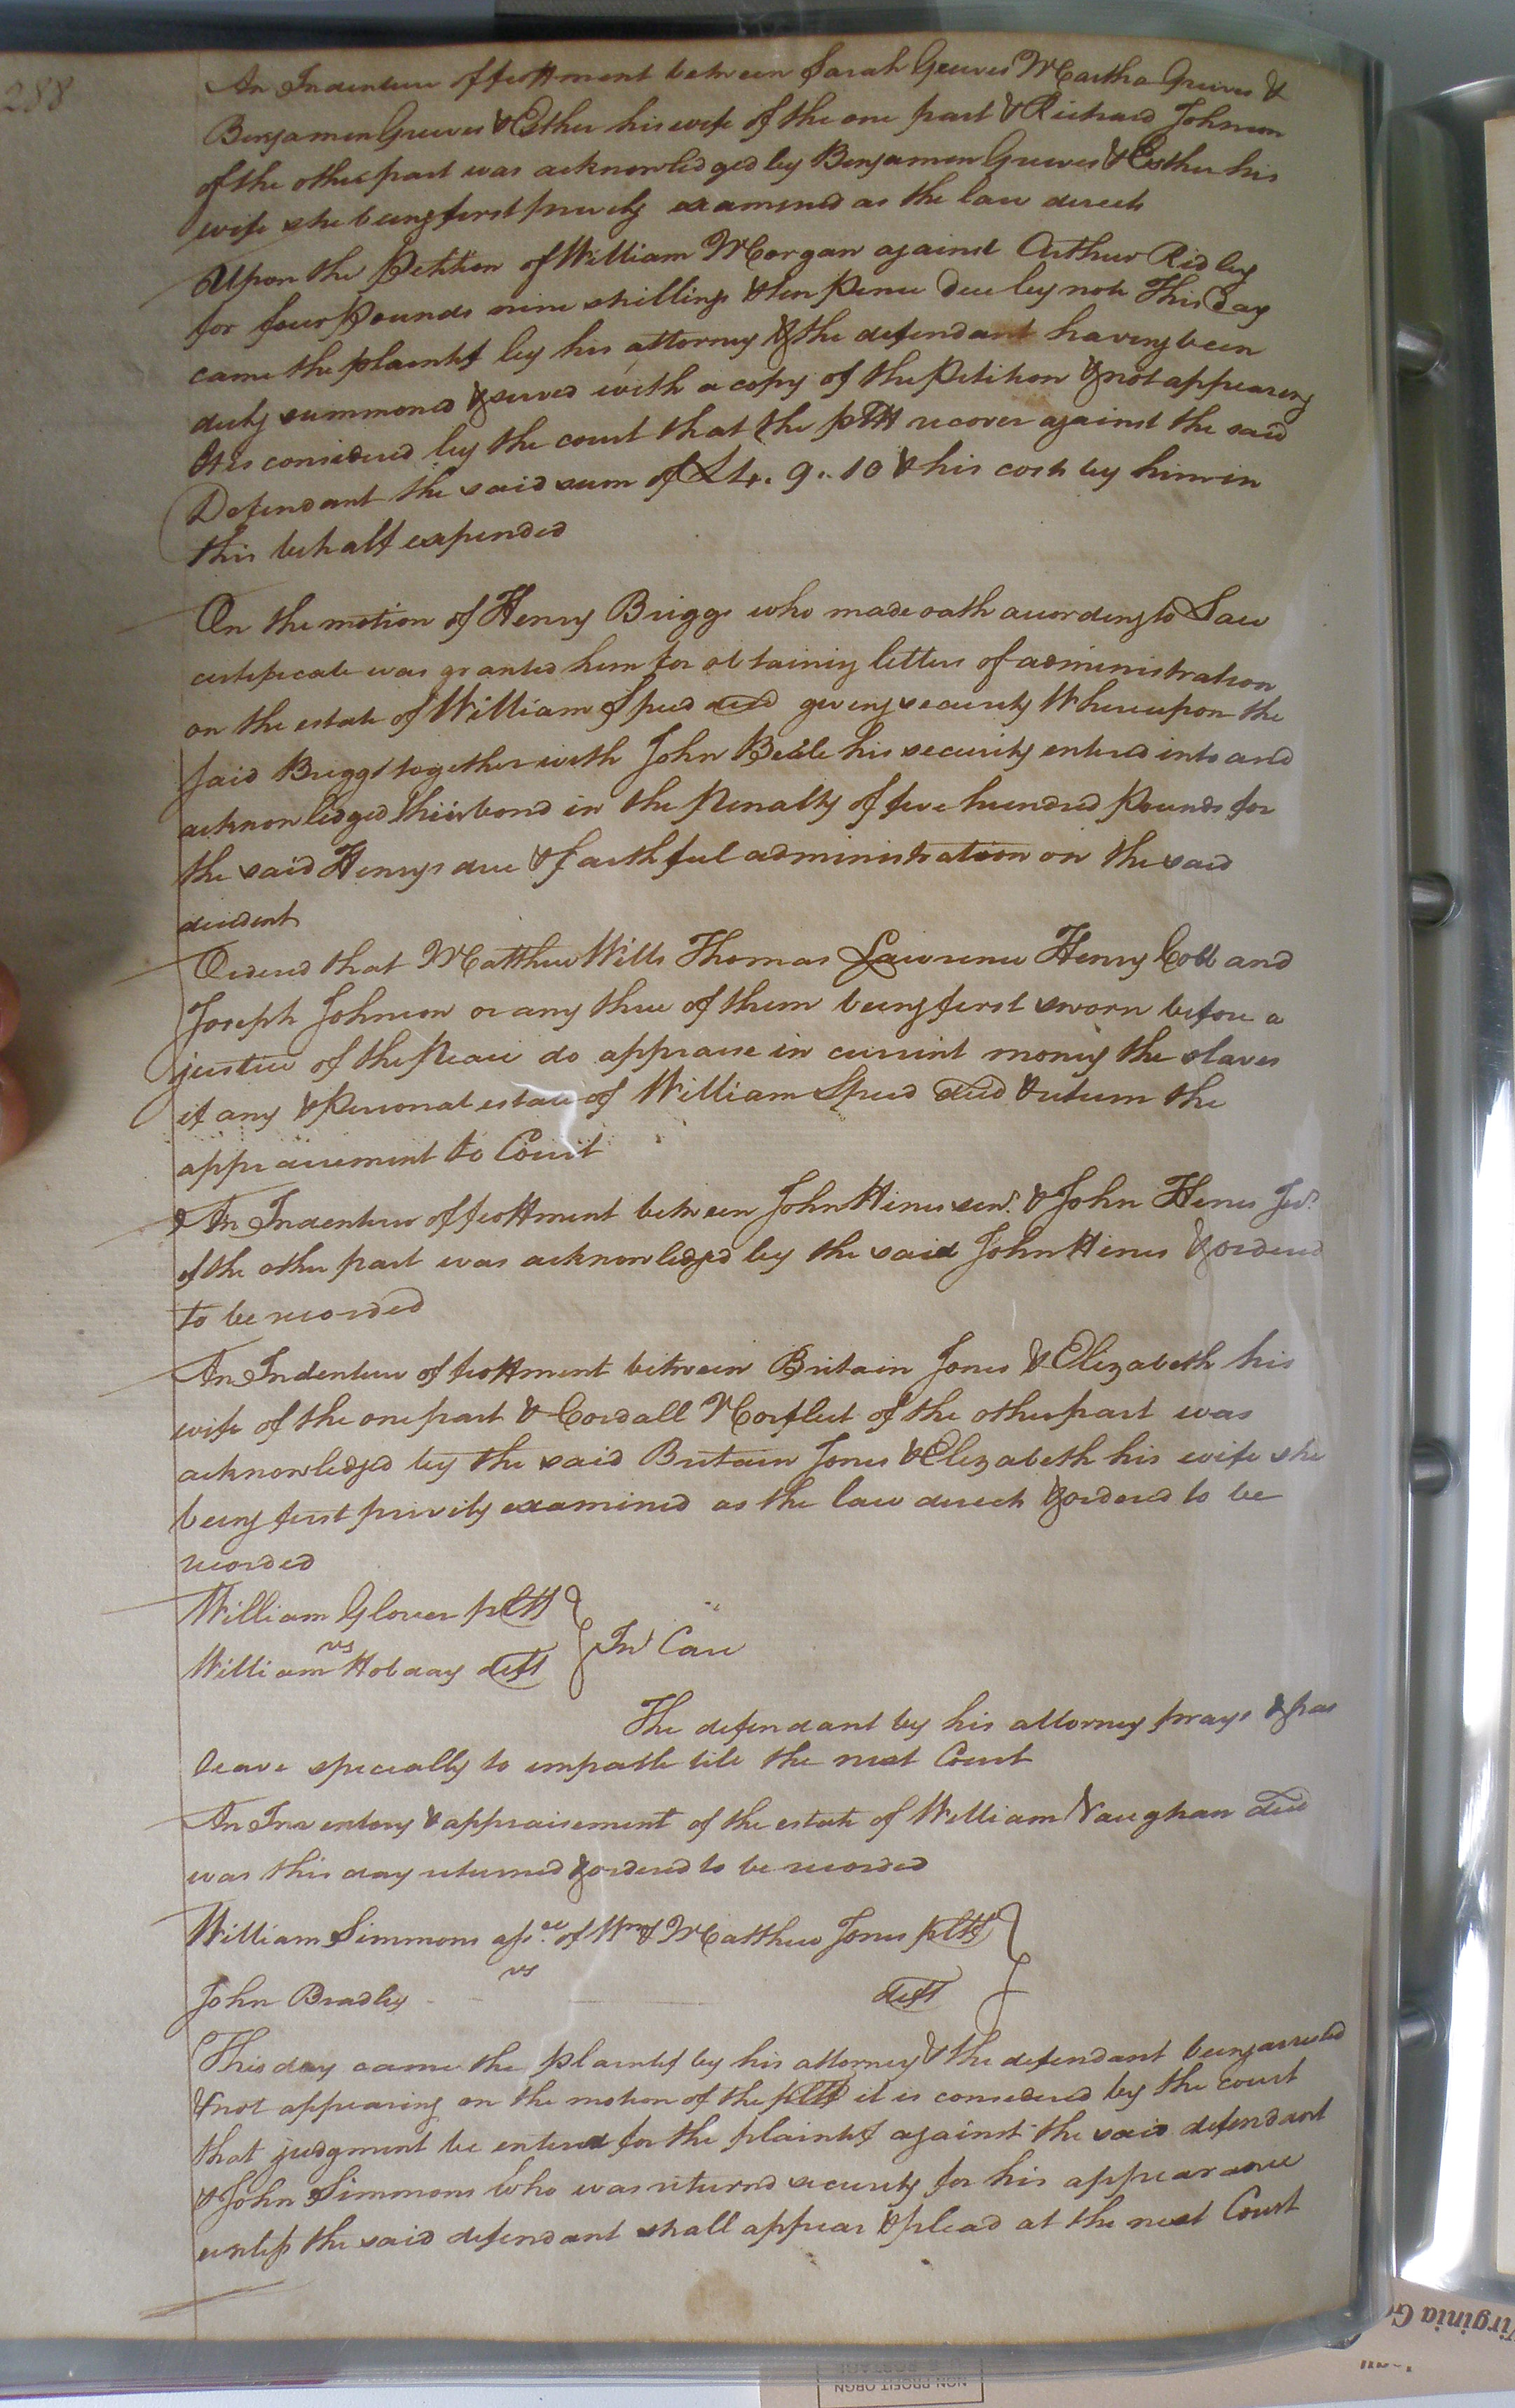 288
An Indenture of feoffment between Sarah Greeves Martha Greeves &
Benjamen Greeves & Esther his wife of the one part & Richard Johnson
of the other part was acknowledged by Benjamen Greeves & Esther his
wife she being first privily examined as the law directs
Upon the Petition of William Morgan against Arthur Ridley
for four Pounds nine shillings & ten Pence Due by note This Day
came the plaintif by his attorney & the defendant having been
duly summoned & served with a copy of the Petition & not appearing
It is considered by the court that the pltf recover against the said
Defendant the said sum of £4. 9.. 10 & his costs by him in
this behalf expended
On the motion of Henry Briggs who made oath according to Law
certificate was granted him for obtaining letters of administration
on the estate of William Speed decd giving security Whereupon the
said Briggs together with John Beale his security entered into and
acknowledged their bond in the Penalty of five hundred Pounds for
the said Henrys due & faithful administration on the said
decedent
Ordered that Matthew Wills Thomas Lawrence Henry Cobb and
Joseph Johnson or any three of them being first sworn before a
justice of the Peace do appraise in current money the slaves
if any & Personal estate of William Speed decd & return the
appraisement to Court
An Indenture of feoffment between John Hines senr. & John Hines Junr.
of the other part was acknowledged by the said John Hines & ordered
to be recorded
An Indenture of feoffment between Britain Jones & Elizabeth his
wife of the one part & Cordall Norfleet of the other part was
acknowledged by the said Britain Jones & Elizabeth his wife she
being first privily examined as the law directs & ordered to be
recorded
William Glover pltf
vs
In Case
William Holday deft
The defendant by his attorney prays & has
leave specially to imparle till the next Court
An Inventory & appraisement of the estate of William Vaughan decd
was this day returned & ordered to be recorded
William Simmons asee. of Wm & Matthew Jones pltf
vs
John Bradley deft
This day came the plaintif by his attorney & the defendant being arrested
& not appearing on the motion of the pltf it is considered by the court
that judgment be entered for the plaintif against the said defendant
& John Simmons who was returnd security for his appearance
unless the said defendant shall appear & plead at the next Court
Virginia G
NON PROFIT ORGN